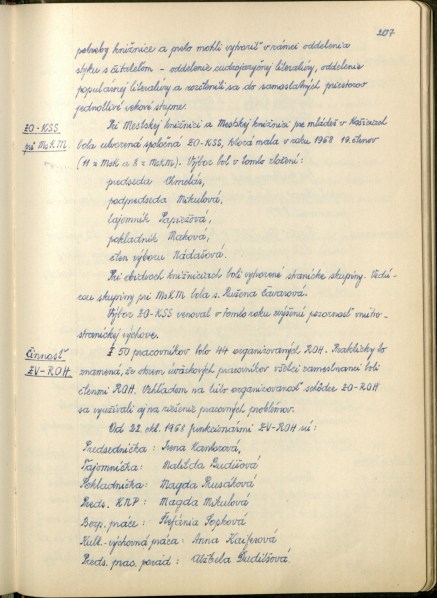 207
potreby knižnice a preto mohli vytvoriť v rámci oddelenia
styku s čitateľom - oddelenie cudzojazyčnej literatúry, oddelenie
populárnej literatúry a rozčleniť sa do samostatných priestorov
jednotliví vekoví stupne.
ZO-KSS
pri MsKM.
Pri Mestskej knižnici a Mestskej knižnici pre mládež v Košiciach
bola utvorená spoločná ZO-KSS, ktorá mala v roku 1968 19 členov
(11 = MsK a 8 = MsKM). Výbor bol v tomto zložení:
predseda Chmelár,
podpredseda Mikulová,
tajomník
pokladník Maková,
člen výboru Nádašová.
Pri obidvoch knižniciach boli vytvorené stranícke skupiny. Vedú-
cou skupiny pri MsKM bola s. Ružena Čavarová.
Výbor ZO-KSS venoval v tomto roku zvýšenú pozornosť vnútro-
straníckej výchove.
Činnosť
ZV-ROH.
Z 50 pracovníkov bolo 44 organizovaných ROH. Prakticky to
znamená, že okrem úväzkových pracovníkov všetci zamestnanci boli
členmi ROH. Vzhľadom na túto organizovanosť schôdze ZO-ROH
sa využívali aj na riešenie pracovných problémov.
Od 22. okt. 1968 funkcionármi ZV-ROH sú:
Predsedníčka: Irena Kantorová,
Tajomníčka: Matilda Dudišová
Pokladníčka: Magda Rusáková
Preds. KNP: Magda Mikulová
Bezp. práce: Štefánia Sopková
Kult.-výchovná práca: Anna Kaiferová
Preds. prac. porád: Alžbeta Dudišová.